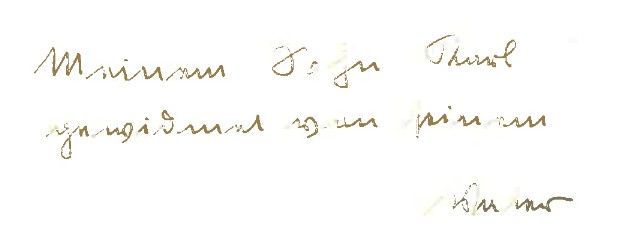 Meinem Sohn Karl
gewidmet von seinem
Vater